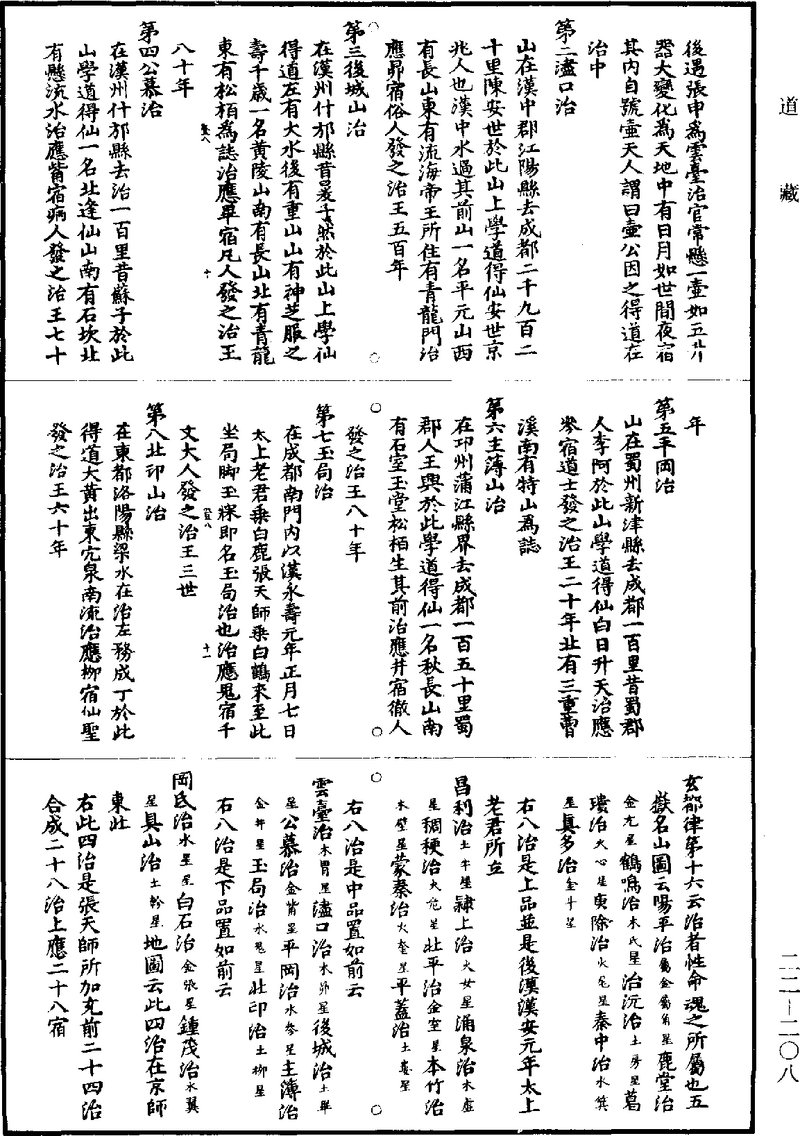 道藏
後遇張申為雲臺治官常懸一壺如五升
器大變化為天地中有日月如世間夜宿
其內自號壺天人謂曰壺公因之得道在
治中
第二濜口治
山在漢中郡江陽縣去成都二千九百二
十里陳安世於此山上學道得仙安世京
兆人也漢中水過其前山一名平元山西
有長山東有流海帝王所住有青龍門治
應昴宿俗人發之治王五百年
第三後城山治
在漢州什邡縣昔晏子然於此山上學仙
得道左有大水後有重山山有神芝服之
壽千歲一名黃陵山南有長山北有青龍
東有松柏為誌治應畢宿凡人發之治王
八十年
第四公慕治
在漢州什邡縣去治一百里昔蘇子於此
山學道得仙一名北逢仙山南有石坎北
有懸流水治應觜宿病人發之治王七十
年
第五平岡治
山在蜀州新津縣去成都一百里昔蜀郡
人李阿於此山學道得仙白日升天治應
參宿道士發之治王二十年北有三重曹
溪南有特山為誌
第六主薄山治
在邛州蒲江縣界去成都一百五十里蜀
郡人王興於此學道得仙一名秋長山南
有石室玉堂松柏生其前治應井宿徵人
發之治王八十年
第七玉局治
在成都南門內以漢永壽元年正月七日
太上老君乘白鹿張天師乘白鶴來至此
坐局脚玉床即名玉局治也治應鬼宿千
丈大人發之治王三世
第八北邙山治
在東都洛陽縣梁水在治左務成丁於此
得道大黃出東宂泉南流治應柳宿仙聖
發之治王六十年
玄都律第十六云治者性命魂之所屬也五
嶽名山圖云陽平治屬金屬角星鹿堂治
金亢星鶴鳴治木氐星治沅治土房星葛
璝治火心星庚除治火尾星秦中治水箕
星真多治金斗星
右八治是上品並是後漢漢安元年太上
老君所立
昌利治土牛星隷上治火女星涌泉治木虛
星稠稉治火危星北平治金室星本竹治
木壁星蒙秦治火奎星平蓋治土婁星
右八治是中品置如前云
雲臺治木胃星濜口治水昴星後城治土畢
星公慕治金觜星平岡治水參星主薄治
金井星玉局治水鬼星北邙治土柳星
右八治是下品置如前云
岡氐治水星星白石治金張星鍾茂治水翼
星具山治土軫星地圖云此四治在京師
東北
右此四治是張天師所加充前二十四治
合成二十八治上應二十八宿
二二—二〇八